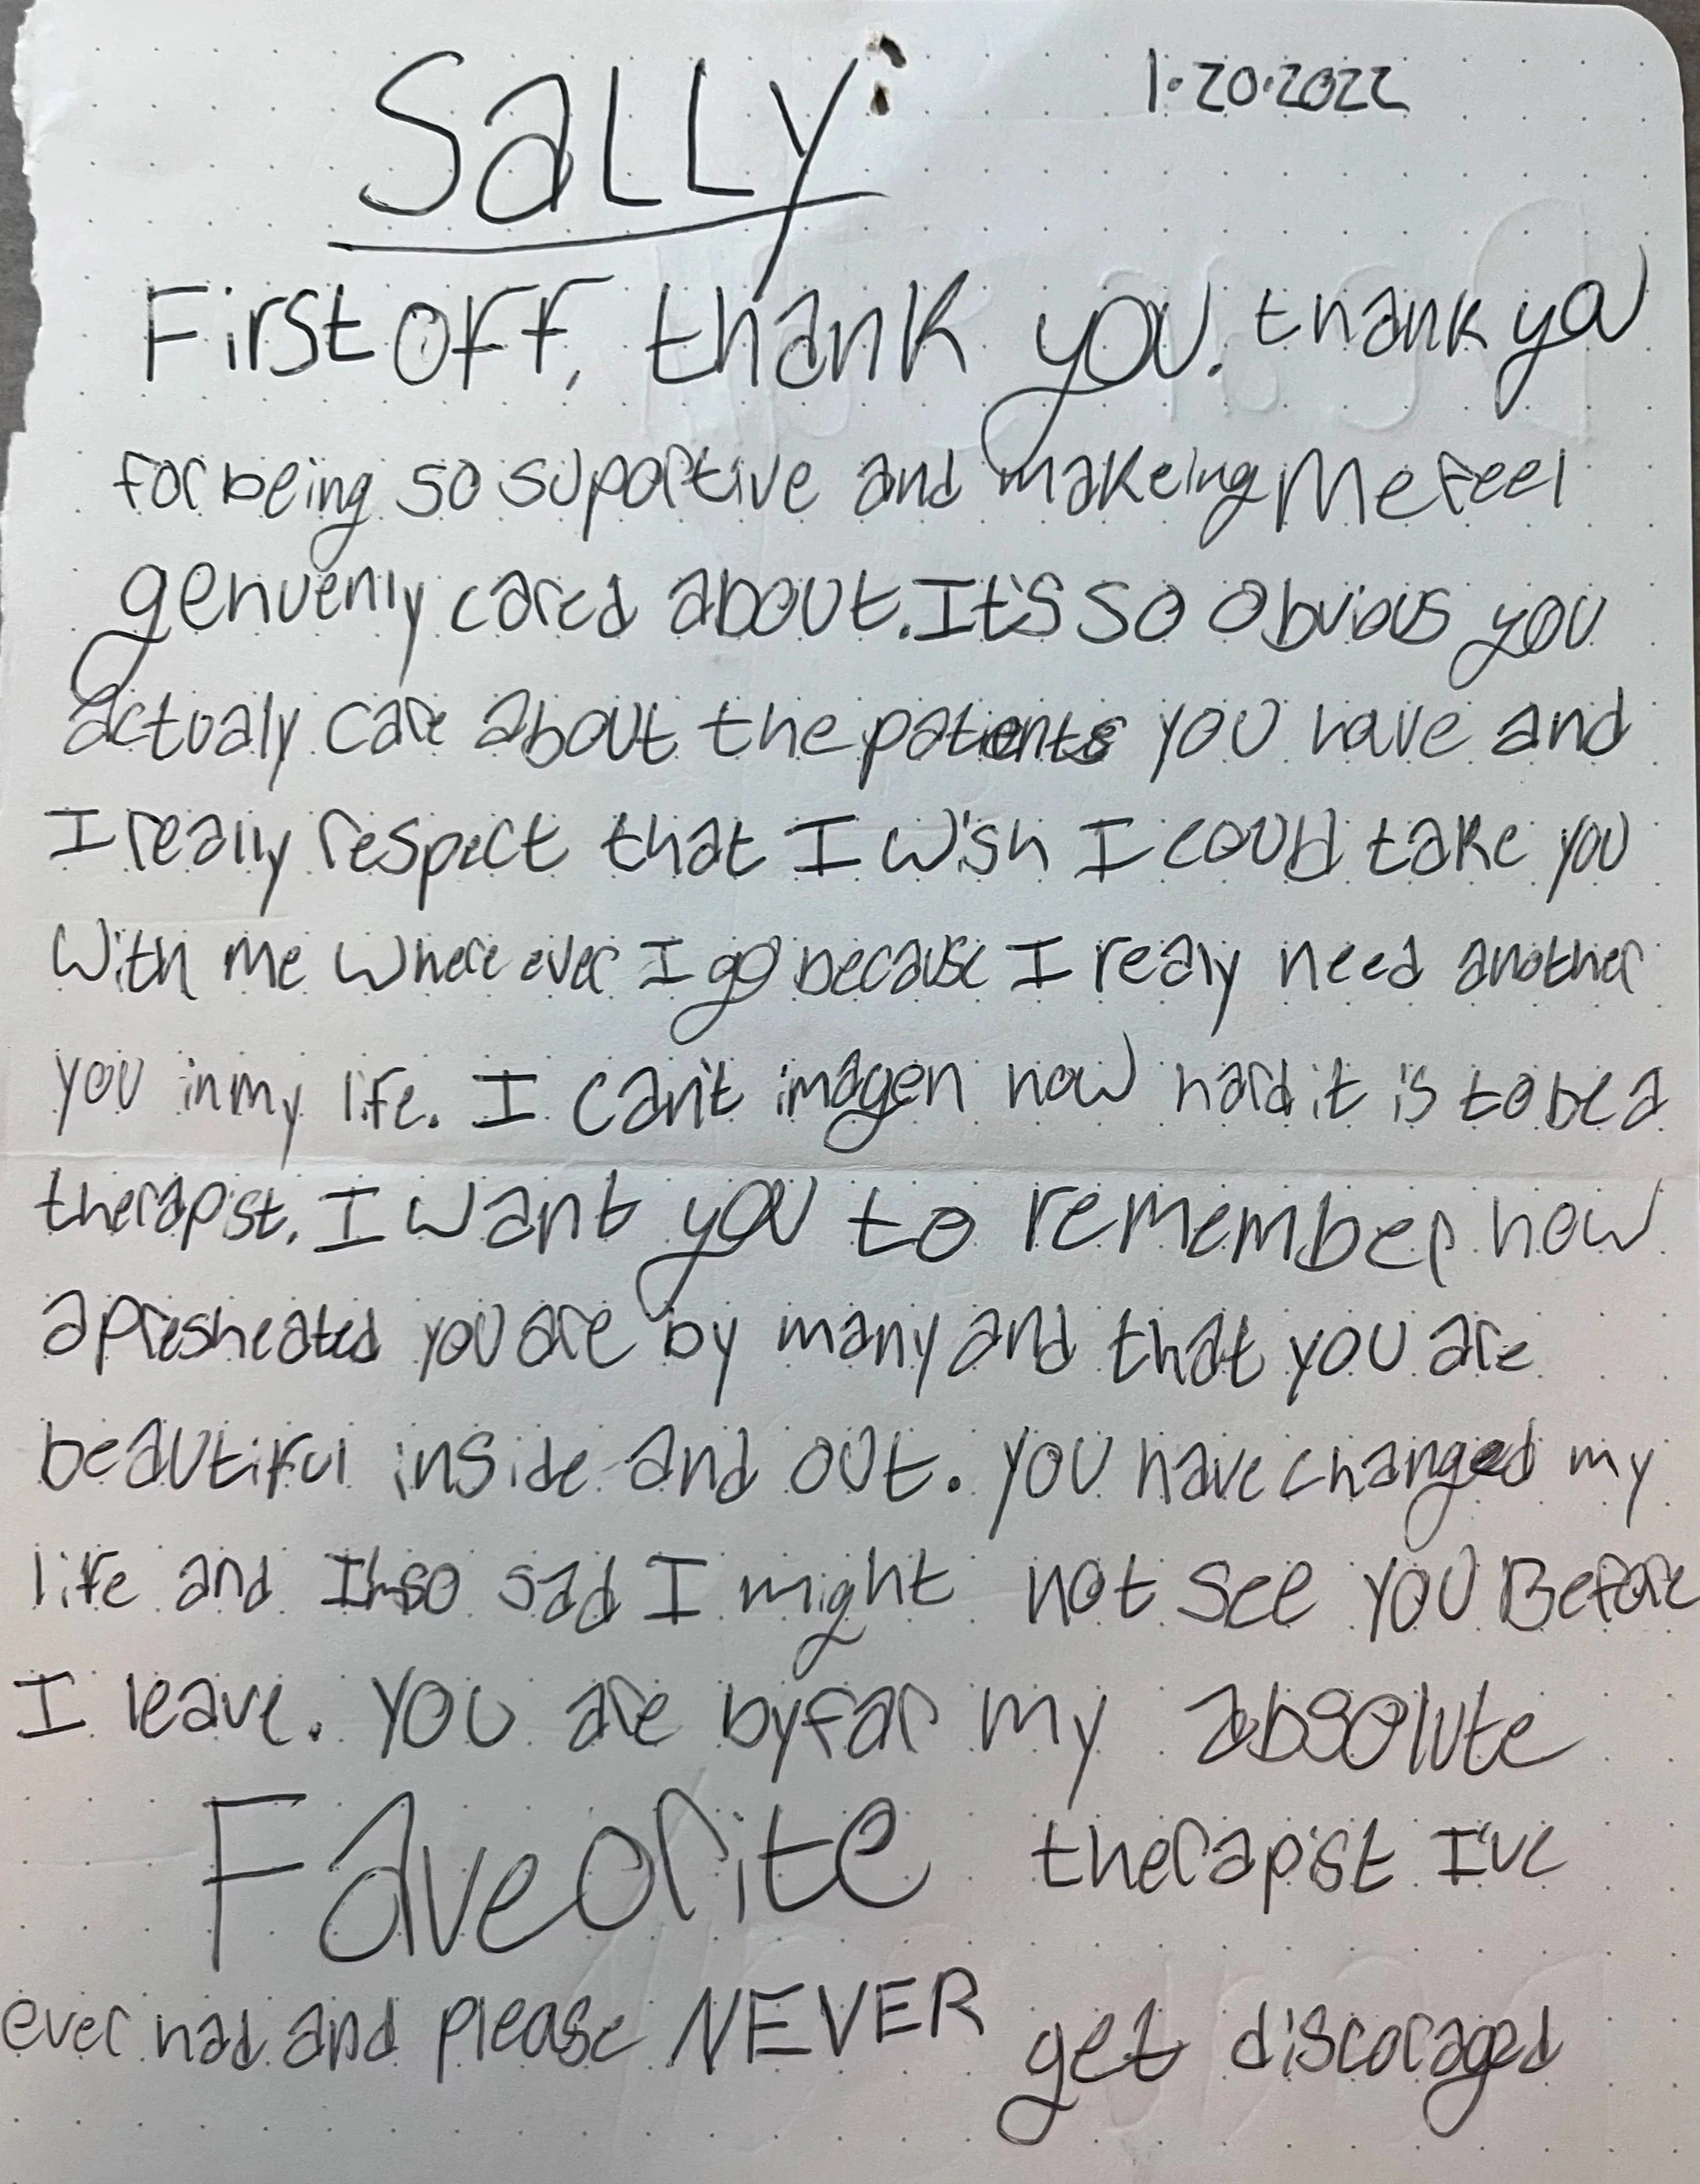 SaLLy: 1·20·2022
First off, thank you. thank you
for being so suportive and makeing me feel
genuenly cared about. It's so obvious you
actualy care about the patients you have and
I really respect that I wish I could take you
with me where ever I go because I realy need another
you in my life. I can't imagen how hard it is to be a
therapist. I want you to remember how
apresheated you are by many and that you are
beautiful inside and out. you have changed my
life and I'm so sad I might not see you Before
I leave. you are by far my absolute
Faveorite therapist I've
ever had and please NEVER get discoraged